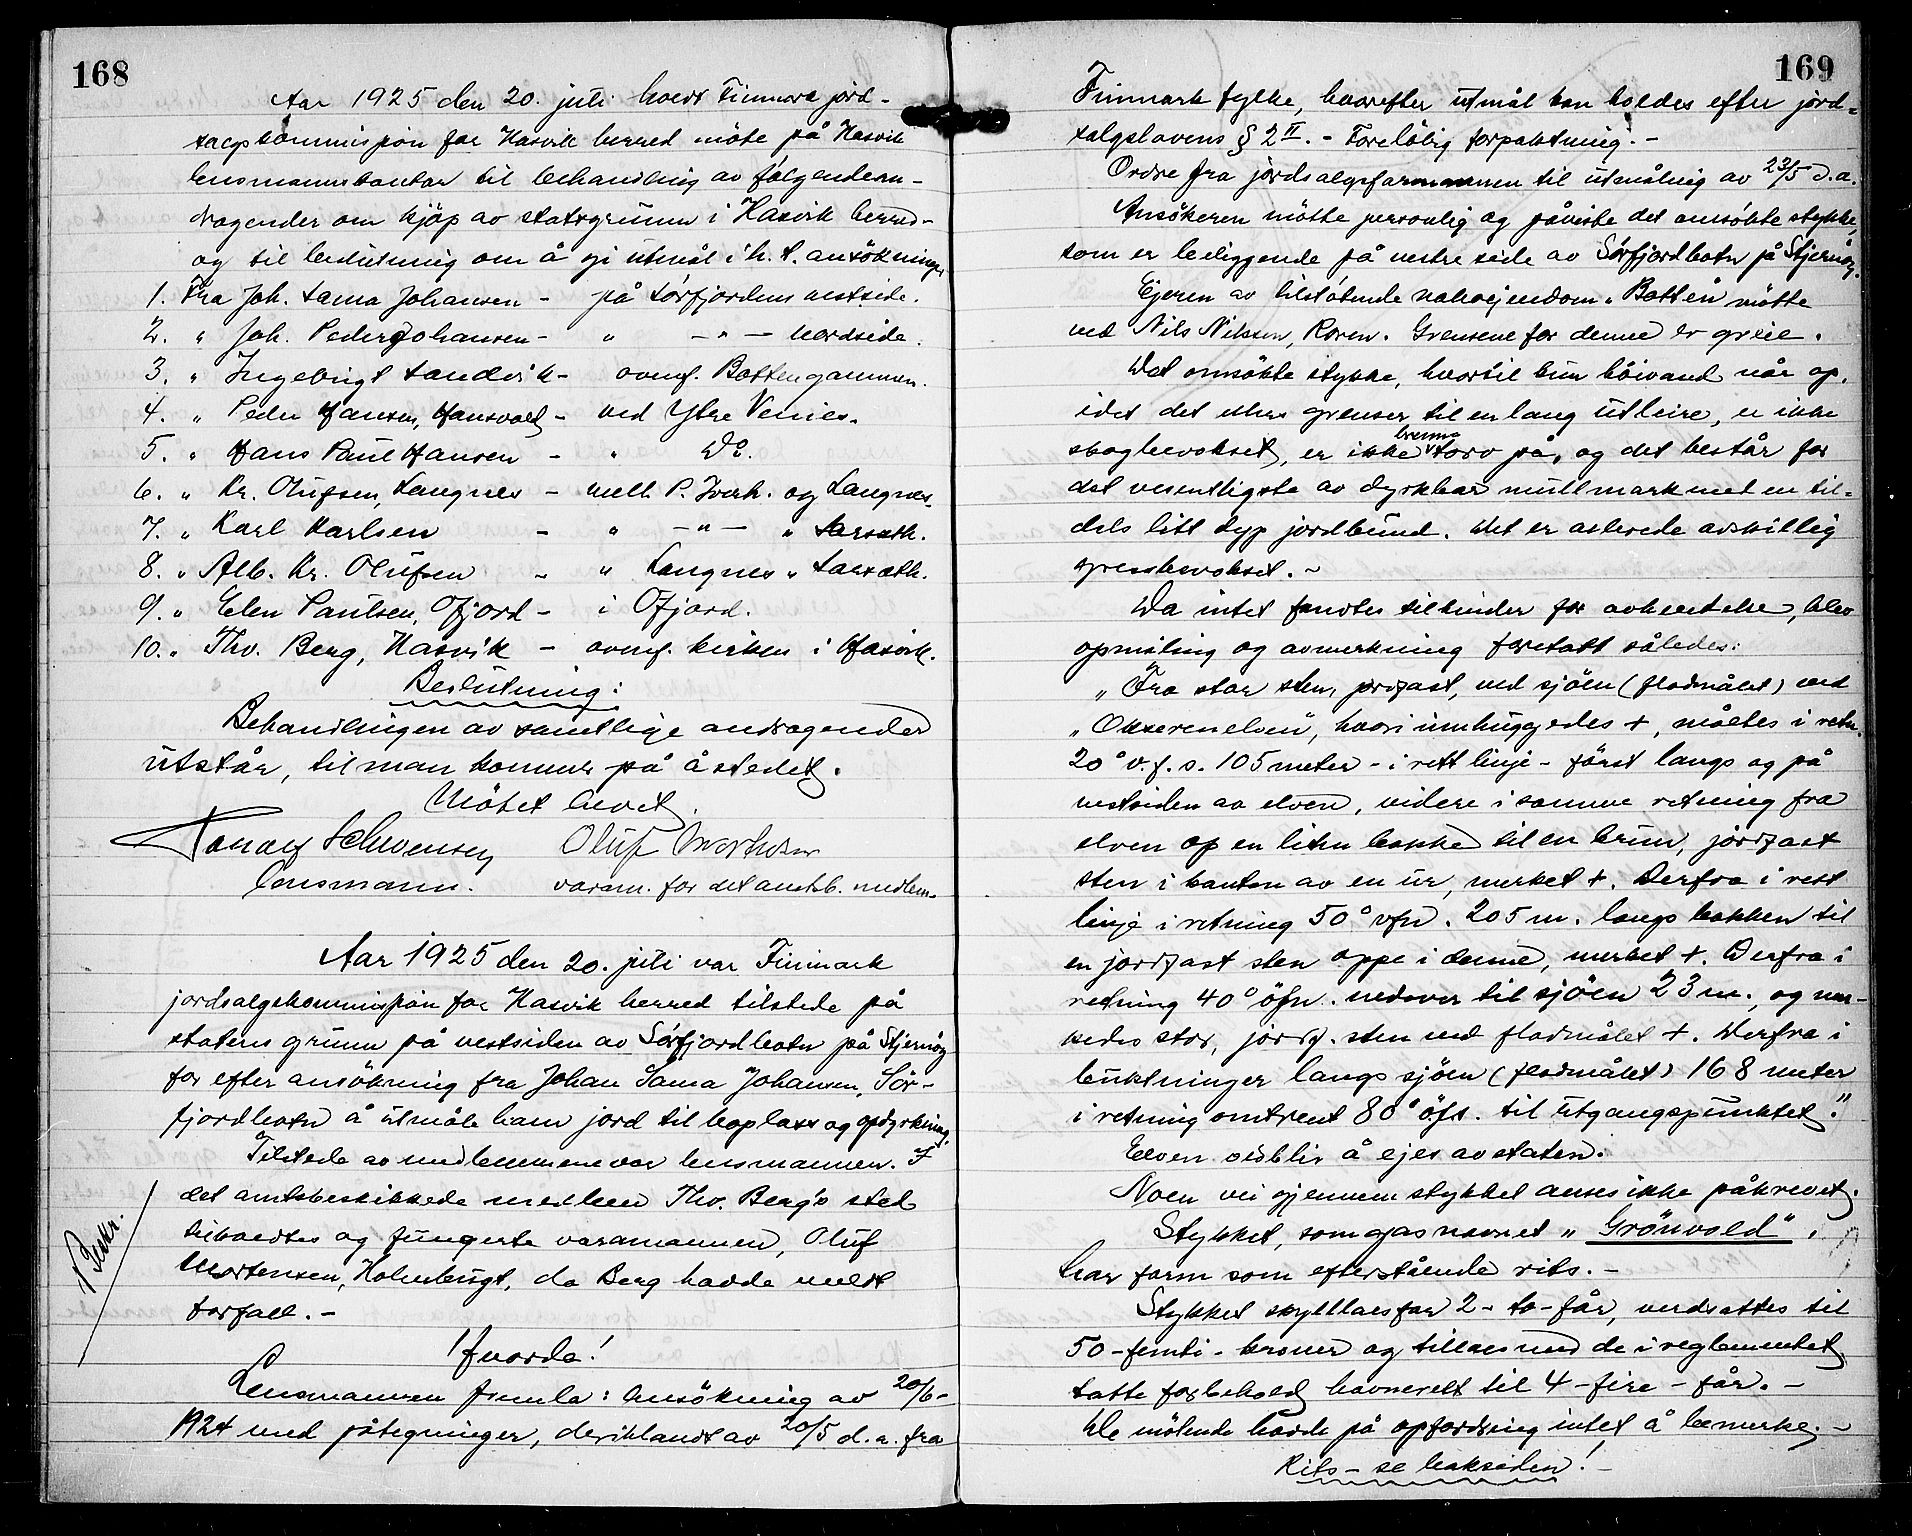 168
Aar 1925 den 20. juli holdt Finmark jord-
salgskommisjon for Hasvik herred möte på Hasvik
lensmannskontor til behandling av følgende an-
dragender om kjöp av statsgrunn i Hasvik herred
og til beslutning om å gi utmål i h. t. ansökninger
1. Fra Joh. Sama Johansen - på Sörfjordens vestside.
2. " Joh. Peder Johansen - " -"- nordside.
3. " Ingebrigt Sandvik - ovenf. Bottengammen.
4. " Peder Hansen, Hansvold - ved Ytre Venies.
5. " Hans Paul Hansen - " Do.
6. " Kr. Olufsen, Langnes - mell. P. Iverh. og Langnes.
7. " Karl Karlsen - " -"- " Sarsath.
8. " Alb. Kr. Olufsen - " Langnes " Sarsath.
9. " Elen Paulsen, Ofjord - i Ofjord.
10. " Thv. Berg, Hasvik - ovenf. kirken i Hasvik.
Beslutning:
Behandlingen av samtlige andragender
utstår, til man kommer på åstedet.
Mötet hevet.
Schwensen Oluf Mortensen
lensmann. varam. for det amtsb. medlem.
Aar 1925 den 20. juli var Finmark
jordsalgskommisjon for Hasvik herred tilstede på
statens grunn på vestsiden av Sörfjordbotn på Stjernöy
for efter ansökning fra Johan Sama Johansen, Sör-
fjordbotn å utmåle ham jord til boplass og opdyrkning.
Tilstede av medlemmene var lensmannen. I
det amtsbeskikkede medlem Thv. Berg's sted
tilkaldtes og fungerte varamannen, Oluf
Mortensen, Holmbugt, da Berg hadde meldt
forfall. -
Beskr.
Hvorda!
Lensmannen fremla: Ansökning av 20/6-
1924 med påtegninger, deriblandt av 20/5 d. a. fra
169
Finmark fylke, hvorefter utmål kan holdes efter jord-
salgslovens § 2 II. - Forelöbig forpaktning. -
Ordre fra jordsalgsformannen til utmåling av 23/5 d. a.
Ansökeren mötte personlig og påviste det ansökte stykke,
som er beliggende på vestre side av Sörfjordbotn på Stjernöy.
Ejeren av tilstötende naboejendom "Botten" mötte
ved Nils Nilssen, Roren. Grensene for denne er greie.
Det ansökte stykke, hvortil kun höivand når op,
idet det ellers grenser til en lang utleire, er ikke
skogbevokset, er ikke brenntorv på, og det består for
det vesentligste av dyrkbar mullmark med en til-
dels litt dyp jordbund. Det er allerede adskillig
gressbevokset. -
Da intet fandtes til hinder for avhendelse, blev
opmåling og avmerkning foretatt således:
"Fra stor sten, jordfast, ved sjöen (flodmålet) ved
"Okserenelven", hvori innhuggedes +, måltes i retn.
20° v. f. s. 105 meter - i rett linje - först langs og på
vestsiden av elven, videre i samme retning fra
elven op en liten bakke til en brun, jordfast
sten i kanten av en ur, merket +. Derfra i rett
linje i retning 50° vfn. 205 m. langs bakken til
en jordfast sten oppe i denne, merket +. Derfra i
retning 40° öfn. nedover til sjöen 23 m., og mer-
kedes stor, jordf. sten ved flodmålet +. Derfra i
buktninger langs sjöen (flodmålet) 168 meter
i retning omtrent 80° öfs. til utgangspunktet."
Elven vedblir å ejes av staten.
Noen vei gjennem stykket anses ikke påkrevet.
Stykket, som gas navnet "Grönvold",
har form som efterstående rits. -
Stykket skylllaes for 2 - to - får, verdsattes til
50 - femti - kroner og tillaes med de i reglementet
satte forbehold havnerett til 4 - fire - får. -
De mötende hadde på opfordring intet å bemerke. -
Rits - se baksiden! -